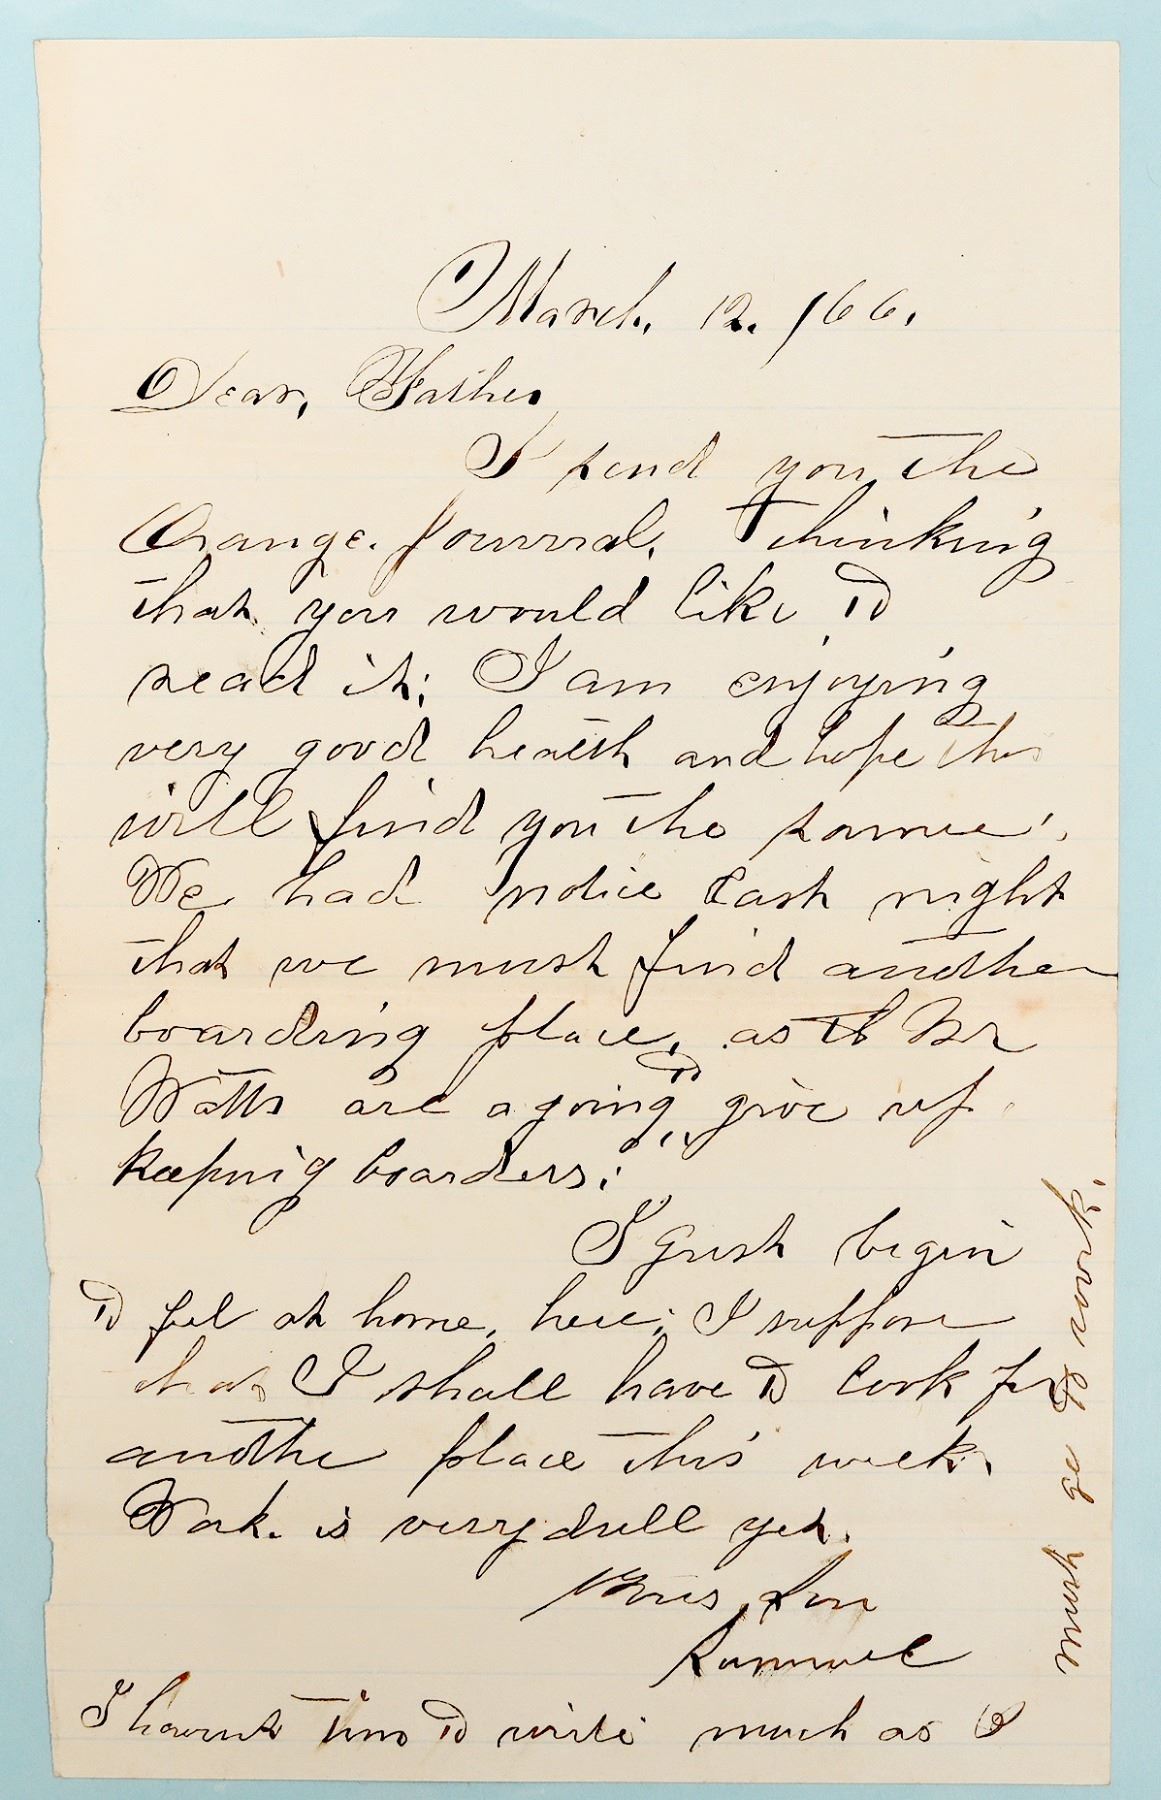 March, 12. /66.
Dear, Father,
I send you the
Orange. Journal. thinking
that you would like to
read it; I am enjoying
very good health and hope this
will find you the same.
We had notice last night
that we must find another
boarding place, as Mr
Watts are a going to give up
keeping boarders;
I Just begin
to feel at home, here; I suppose
that I shall have to look for
another place this week.
Work. is very dull yet.
Yours Son
Samuel
I havent time to write much as I
must go to work.